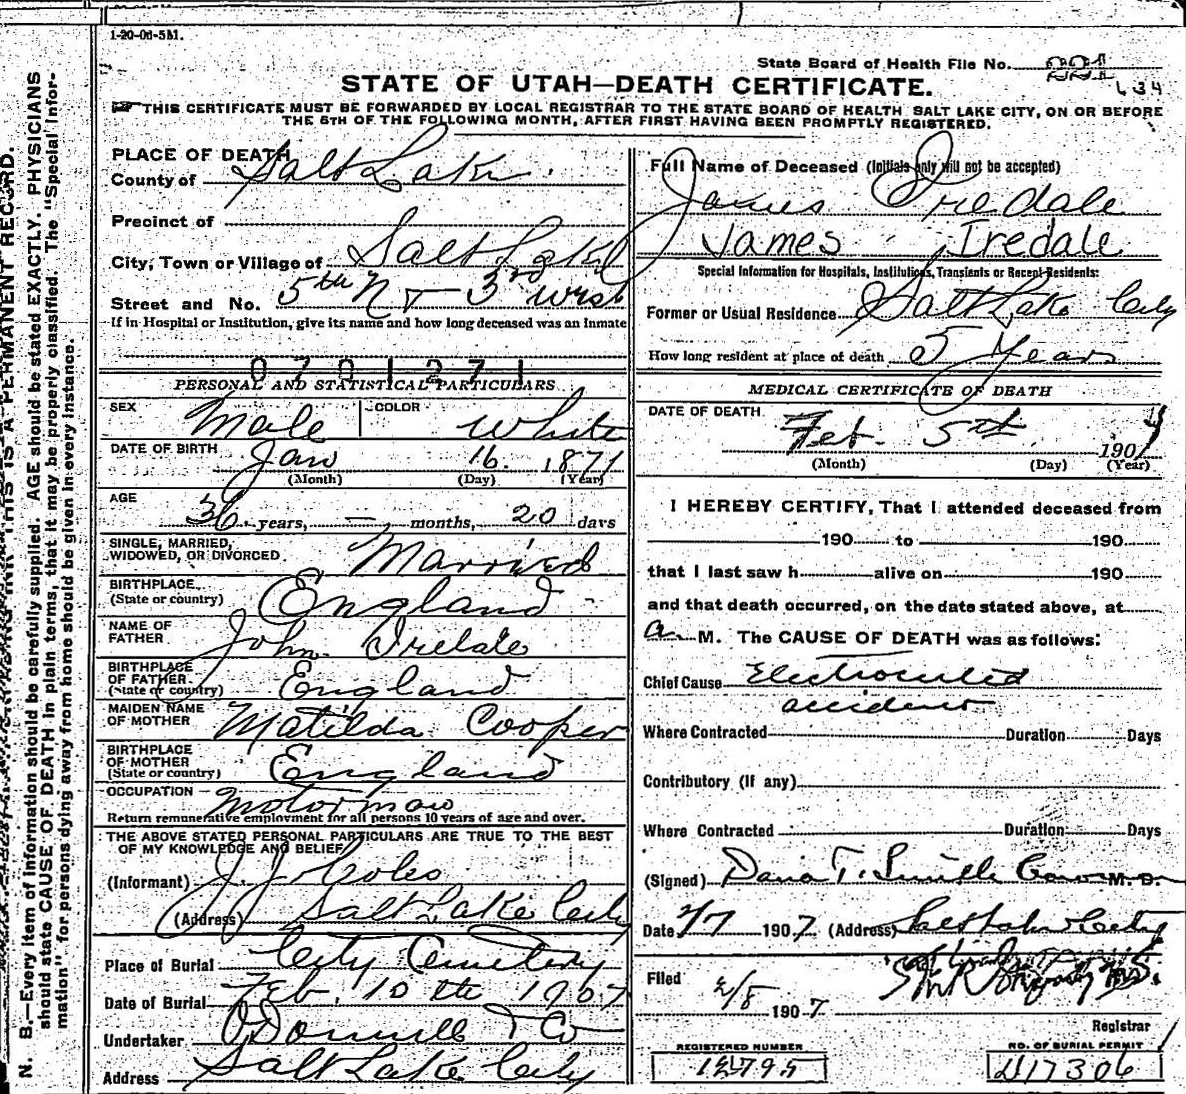 1-20-06-5M.
State Board of Health File No. 234
STATE OF UTAH—DEATH CERTIFICATE.
THIS CERTIFICATE MUST BE FORWARDED BY LOCAL REGISTRAR TO THE STATE BOARD OF HEALTH, SALT LAKE CITY, ON OR BEFORE
THE 5TH OF THE FOLLOWING MONTH, AFTER FIRST HAVING BEEN PROMPTLY REGISTERED.
N. B.—Every item of information should be carefully supplied. AGE should be stated EXACTLY. PHYSICIANS
should state CAUSE OF DEATH in plain terms, that it may be properly classified. The "Special Infor-
mation" for persons dying away from home should be given in every instance.
THIS IS A PERMANENT RECORD.
PLACE OF DEATH
County of Salt Lake
Precinct of
City, Town or Village of Salt Lake
Street and No. 5th N + 3rd West
If in Hospital or Institution, give its name and how long deceased was an Inmate
0701271
PERSONAL AND STATISTICAL PARTICULARS
SEX Male COLOR White
DATE OF BIRTH Jan 16. 1871
(Month) (Day) (Year)
AGE 36 years, — months, 20 days
SINGLE, MARRIED,
WIDOWED, OR DIVORCED Married
BIRTHPLACE
(State or country) England
NAME OF
FATHER John Iredale
BIRTHPLACE
OF FATHER
(State or country) England
MAIDEN NAME
OF MOTHER Matilda Cooper
BIRTHPLACE
OF MOTHER
(State or country) England
OCCUPATION Motorman
Return remunerative employment for all persons 10 years of age and over.
THE ABOVE STATED PERSONAL PARTICULARS ARE TRUE TO THE BEST
OF MY KNOWLEDGE AND BELIEF
(Informant) J. J. Coles
(Address) Salt Lake City
Place of Burial City Cemetery
Date of Burial Feb. 10th 1907
Undertaker O'Donnell & Co
Address Salt Lake City
Full Name of Deceased (Initials only will not be accepted)
James Iredale
James Iredale
Special Information for Hospitals, Institutions, Transients or Recent Residents:
Former or Usual Residence Salt Lake City
How long resident at place of death 5 Years
MEDICAL CERTIFICATE OF DEATH
DATE OF DEATH. Feb. 5th. 1907
(Month) (Day) (Year)
I HEREBY CERTIFY, That I attended deceased from
190 to 190
that I last saw h alive on 190
and that death occurred, on the date stated above, at
a. M. The CAUSE OF DEATH was as follows:
Chief Cause Electrocuted
accident
Where Contracted Duration Days
Contributory (if any)
Where Contracted Duration Days
(Signed) Dana T. Smith M. D.
Date 2/7 1907. (Address) Salt Lake City
Filed 2/8 1907.
Registrar
REGISTERED NUMBER
NO. OF BURIAL PERMIT
D17306